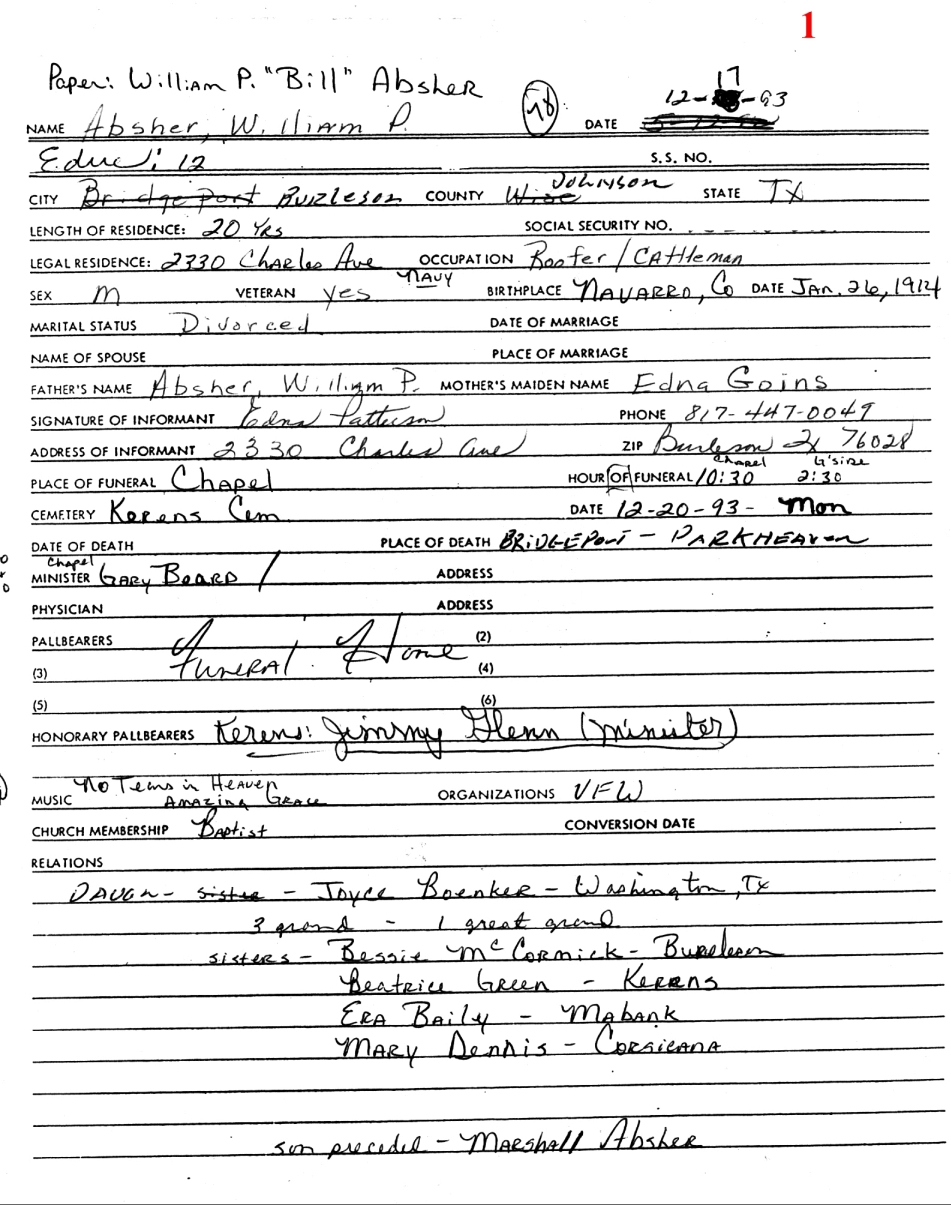 1
Paper: William P. "Bill" Absher
17
12- -93
NAME Absher, William P. DATE
Educ: 12 S.S. NO.
Johnson
CITY Bridgeport Burleson COUNTY Wise STATE TX
LENGTH OF RESIDENCE: 20 Yrs SOCIAL SECURITY NO.
LEGAL RESIDENCE: 2330 Charles Ave OCCUPATION Roofer/CAttleman
NAVY
SEX M VETERAN yes BIRTHPLACE NAVARRO, Co DATE JAN. 26, 1914
MARITAL STATUS Divorced DATE OF MARRIAGE
NAME OF SPOUSE PLACE OF MARRIAGE
FATHER'S NAME Absher, William P. MOTHER'S MAIDEN NAME Edna Goins
SIGNATURE OF INFORMANT Edna Patterson PHONE 817-447-0049
ADDRESS OF INFORMANT 2330 Charles Ave ZIP Burleson Tx 76028
Chapel G'side
PLACE OF FUNERAL Chapel HOUR OF FUNERAL 10:30 2:30
CEMETERY Kerens Cem DATE 12-20-93- Mon
DATE OF DEATH PLACE OF DEATH BRIDGEPort - PARKHEAVEN
Chapel
MINISTER GARY BOARD / ADDRESS
PHYSICIAN ADDRESS
PALLBEARERS (2)
Funeral Home
(3) (4)
(5) (6)
HONORARY PALLBEARERS Kerens: Jimmy Glenn (minister)
No Tears in Heaven
MUSIC Amazing Grace ORGANIZATIONS VFW
CHURCH MEMBERSHIP Baptist CONVERSION DATE
RELATIONS
DAUGH- sister - Joyce Boenker - Washington, Tx
3 grand - 1 great grand
sisters - Bessie McCormick - Burleson
Beatrice Green - Kerens
ERA Baily - Mabank
MARY Dennis - Corsicana
son preceded - Marshall Absher